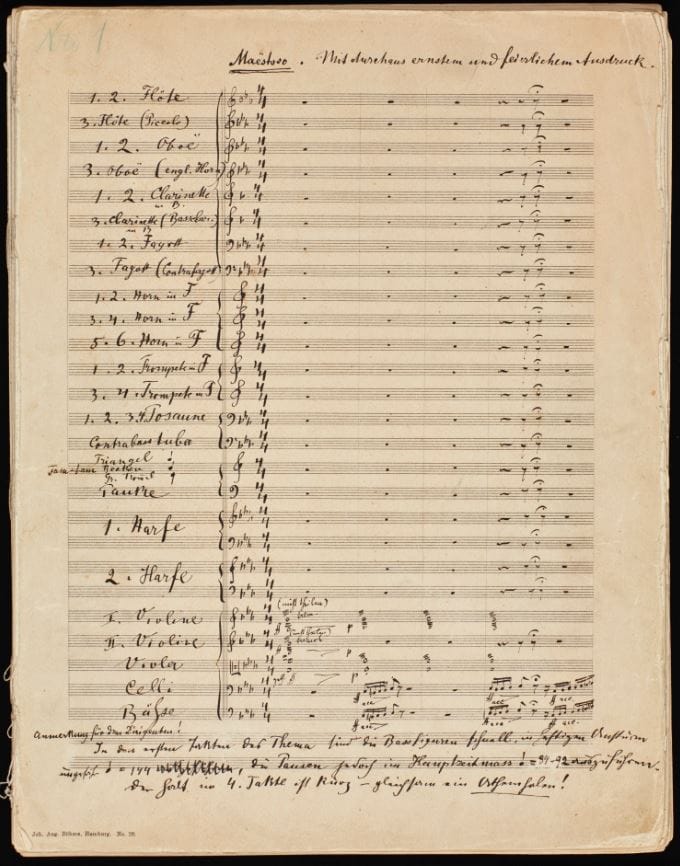 No 1
Maëstoso. Mit durchaus ernstem und feierlichem Ausdruck.
1. 2. Flöte
3. Flöte (Piccolo)
1. 2. Oboë
3. Oboë (engl. Horn)
1. 2. Clarinette
in B.
3. Clarinette (Bassclar.)
in B
1. 2. Fagott
3. Fagott (Contrafagott)
1. 2. Horn in F
3. 4. Horn in F
5. 6. Horn in F
1. 2. Trompete in F
3. 4. Trompete in F
1. 2. 3. 4. Posaune
Contrabass tuba
Triangel
Tam-tam Becken
Gr. Tromel
Pauke
1. Harfe
2. Harfe
(nicht theilen)
I. Violine
ff p
II. Violine
Viola
p
Celli
ff acc.
Bässe
ff acc.
Anmerkung für den Dirigenten!
In den ersten Takten des Thema sind die Bassfiguren schnell, in heftigem Ansturm
ungefähr = 144, die Pausen jedoch im Hauptzeitmass = 84-92 auszuführen.
Der Halt im 4. Takte ist kurz – gleichsam ein Athemholen!
Joh. Aug. Böhme, Hamburg. No.